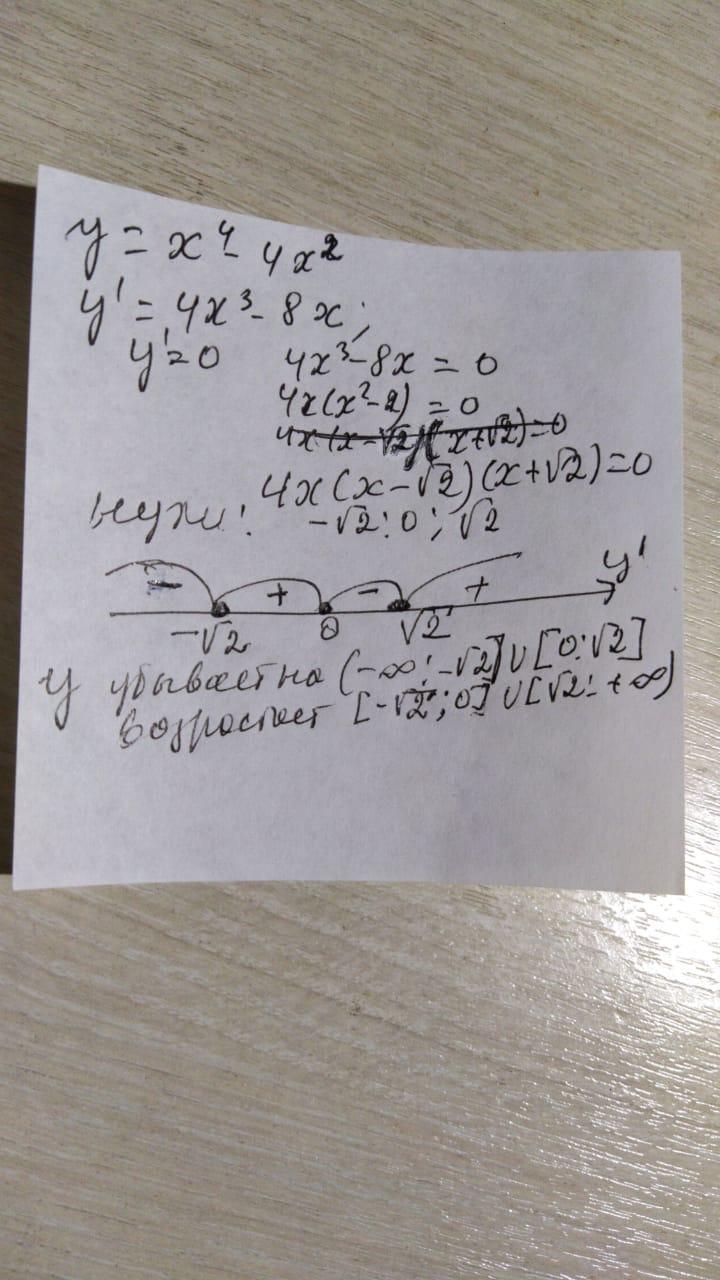 y = x⁴ - 4x²
y' = 4x³ - 8x;
y' = 0 4x³ - 8x = 0
4x(x² - 2) = 0
4x(x - √2)(x + √2) = 0
4x(x - √2)(x + √2) = 0
нули: -√2; 0; √2
- + - + y'
-√2 0 √2
y убывает на (-∞; -√2] ∪ [0; √2]
возрастает [-√2; 0] ∪ [√2; +∞)